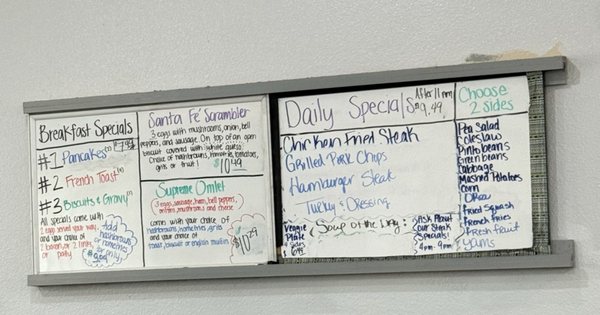 Breakfast Specials
#1 Pancakes
#2 French Toast
#3 Biscuits & Gravy
All specials come with
1 egg served your way,
and your choice of
2 bacon, or 2 links,
or patty
add
hashbrowns
or homefries
only
Santa Fé Scrambler
3 eggs with mushrooms, onion, bell
peppers, and sausage. On top of an open
biscuit covered with white queso.
Choice of hashbrowns, homefries, tomatoes,
grits or fruit!
$10.49
Supreme Omlet
3 eggs, sausage, ham, bell peppers,
onions, mushrooms and cheese
comes with your choice of
hashbrowns, homefries, grits
and your choice of
toast, biscuit or english muffin
Daily Special
After 11 pm
$9.49
Chicken Fried Steak
Grilled Pork Chops
Hamburger Steak
Turkey & Dressing
Soup of the Day:
Veggie
Plate
4 sides
Ask About
our Steak
Specials!
4pm-9pm
Choose
2 sides
Pea Salad
Coleslaw
Pinto beans
Green beans
Cabbage
Mashed Potatoes
Corn
Okra
Fried Squash
French Fries
Fresh fruit
Yams